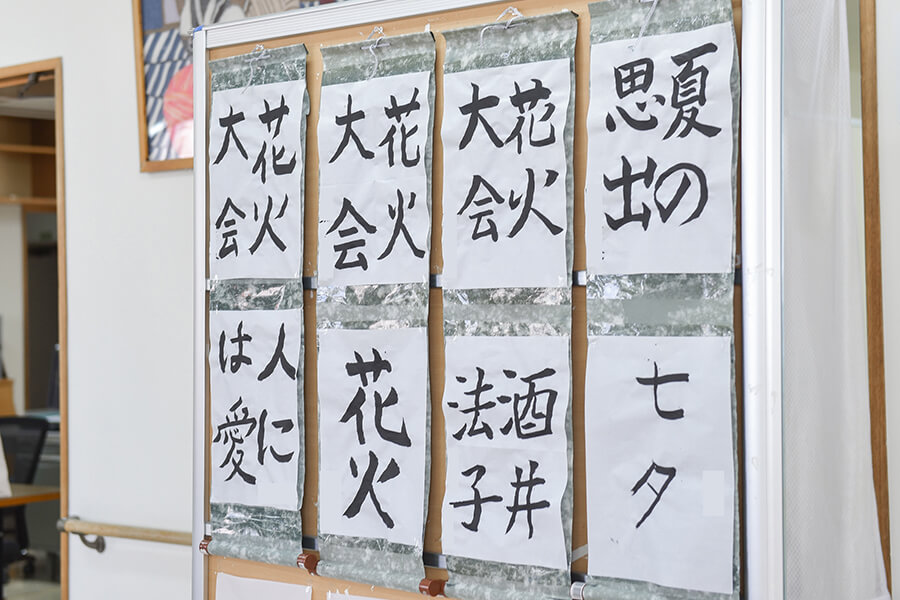 夏の
思出
花火
大会
花火
大会
花火
大会
七夕
酒井
法子
花火
人に
は愛